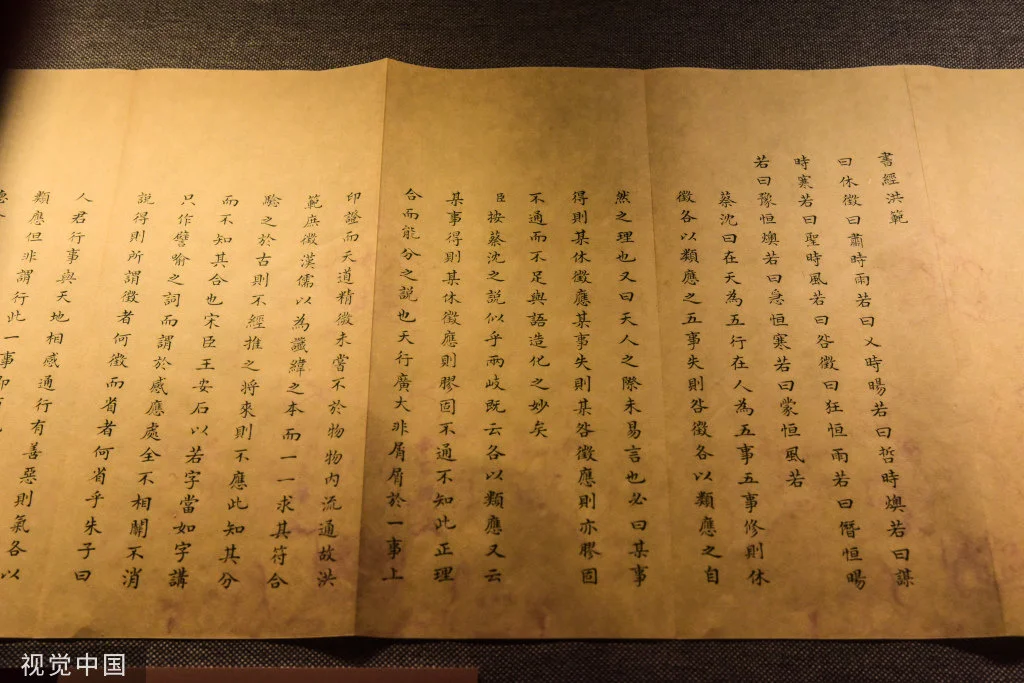 書經洪範
曰休徵曰肅時雨若曰乂時暘若曰哲時燠若曰謀
時寒若曰聖時風若曰咎徵曰狂恒雨若曰僭恒暘
若曰豫恒燠若曰急恒寒若曰蒙恒風若
蔡沈曰在天為五行在人為五事五事修則休
徵各以類應之五事失則咎徵各以類應之自
然之理也又曰天人之際未易言也必曰某事
得則某休徵應某事失則某咎徵應則亦膠固
不通而不足與語造化之妙矣
臣按蔡沈之說似乎兩岐既云各以類應又云
某事得則某休徵應則膠固不通不知此正理
合而能分之說也天行廣大非屑屑於一事上
印證而天道精微未嘗不於物物內流通故洪
範庶徵漢儒以為讖緯之本而一一求其符合
驗之於古則不經推之將來則不應此知其分
而不知其合也宋臣王安石以若字當如字講
只作譬喻之詞而謂於感應處全不相關不消
說得則所謂徵者何徵而省者何省乎朱子曰
人君行事與天地相感通行有善惡則氣各以
類應但非謂行此一事即
视觉中国